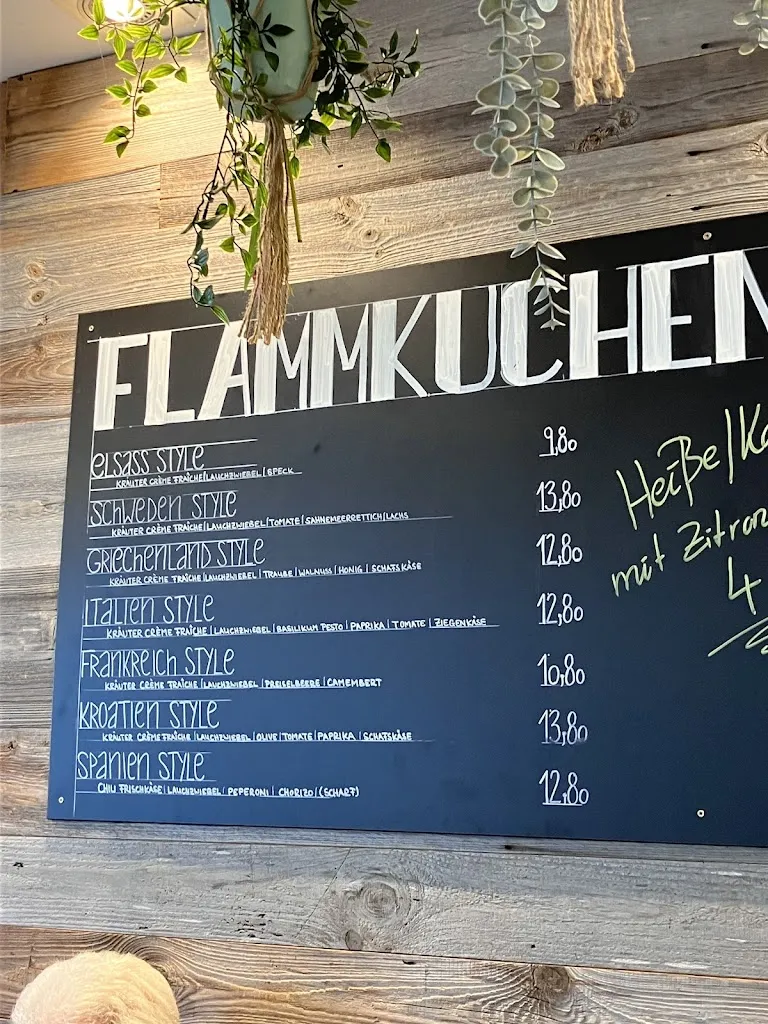 FLAMMKUCHEN
ELSASS STYLE 9,80
KRÄUTER CRÈME FRAÎCHE | LAUCHZWIEBEL | SPECK
SCHWEDEN STYLE 13,80
KRÄUTER CRÈME FRAÎCHE | LAUCHZWIEBEL | TOMATE | SAHNEMEERRETTICH | LACHS
GRIECHENLAND STYLE 12,80
KRÄUTER CRÈME FRAÎCHE | LAUCHZWIEBEL | TRAUBE | WALNUSS | HONIG | SCHAFSKÄSE
ITALIEN STYLE 12,80
KRÄUTER CRÈME FRAÎCHE | LAUCHZWIEBEL | BASILIKUM PESTO | PAPRIKA | TOMATE | ZIEGENKÄSE
FRANKREICH STYLE 10,80
KRÄUTER CRÈME FRAÎCHE | LAUCHZWIEBEL | PREISELBEERE | CAMEMBERT
KROATIEN STYLE 13,80
KRÄUTER CRÈME FRAÎCHE | LAUCHZWIEBEL | OLIVE | TOMATE | PAPRIKA | SCHAFSKÄSE
SPANIEN STYLE 12,80
CHILI FRISCHKÄSE | LAUCHZWIEBEL | PEPERONI | CHORIZO | (SCHARF)
Heiße/Ka
mit Zitron
4